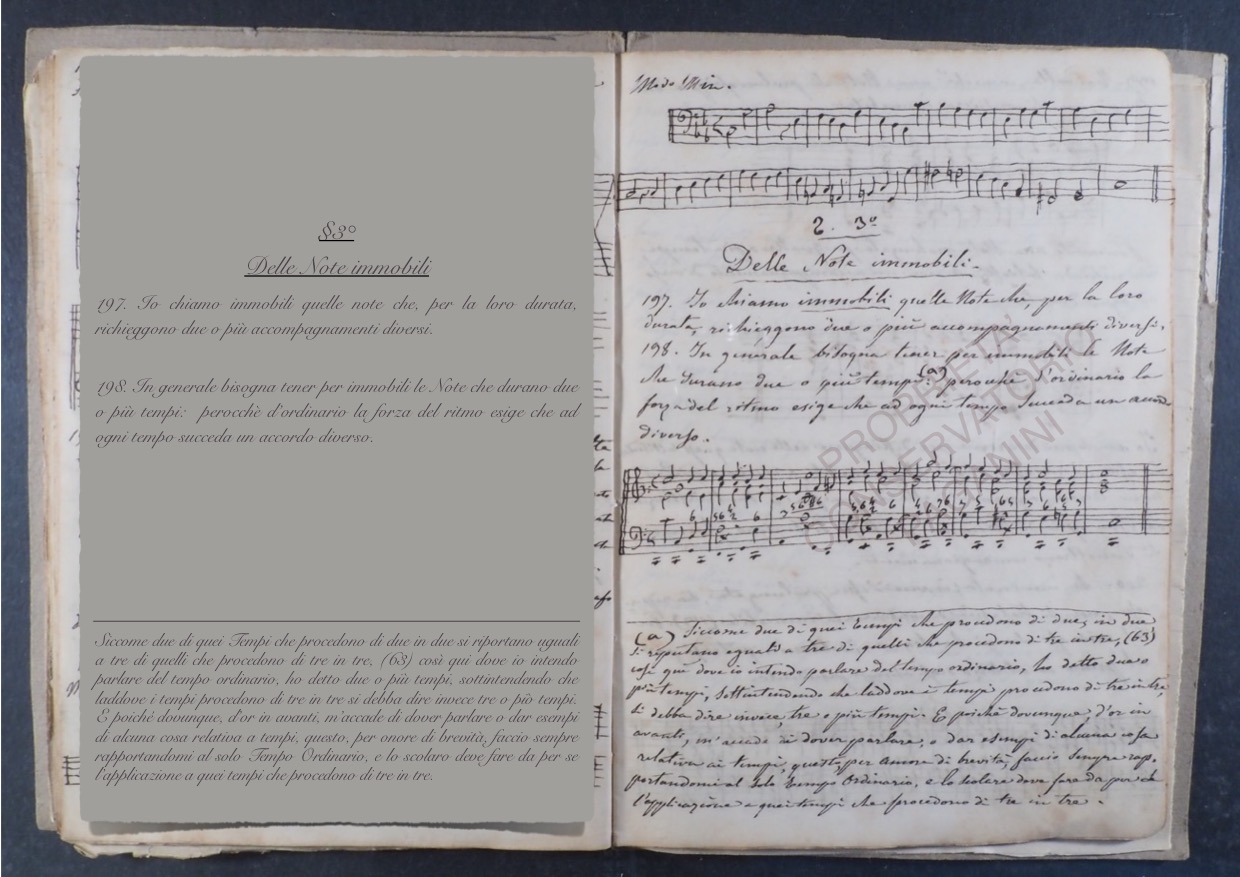 §3°
Delle Note immobili
197. Io chiamo immobili quelle note che, per la loro durata,
richieggono due o più accompagnamenti diversi.
198. In generale bisogna tener per immobili le Note che durano due
o più tempi: perocchè d'ordinario la forza del ritmo esige che ad
ogni tempo succeda un accordo diverso.
Siccome due di quei Tempi che procedono di due in due si riportano uguali
a tre di quelli che procedono di tre in tre, (63) così qui dove io intendo
parlare del tempo ordinario, ho detto due o più tempi, sottintendendo che
laddove i tempi procedono di tre in tre si debba dire invece tre o piò tempi.
E poiché dovunque, d'or in avanti, m'accade di dover parlare o dar esempi
di alcuna cosa relativa a tempi, questo, per onore di brevità, faccio sempre
rapportandomi al solo Tempo Ordinario, e lo scolaro deve fare da per se
l'applicazione a quei tempi che procedono di tre in tre.
Modo Min.
2. 3°
Delle Note immobili.
197. Io chiamo immobili quelle Note che, per la loro
durata, richieggono due o più accompagnamenti diversi.
198. In generale bisogna tener per immobili le Note
che durano due o più tempi: (a) perocchè d'ordinario la
forza del ritmo esige che ad ogni tempo succeda un accordo
diverso.
PROPRIETA'
CONSERVATORIO
PAGANINI
(a) Siccome due di quei tempi che procedono di due, in due
si reputano eguali a tre di quelli che procedono di tre in tre, (63)
così qui dove io intendo parlare del tempo ordinario, ho detto due o
più tempi, sottintendendo che laddove i tempi procedono di tre in tre
si debba dire invece, tre o più tempi. E poichè dovunque, d'or in
avanti, m'accade di dover parlare, o dar esempi di alcuna cosa
relativa ai tempi, questo, per amore di brevità, faccio sempre rap-
portandomi al solo Tempo Ordinario, e lo scolare deve fare da per se
l'applicazione a quei tempi che procedono di tre in tre.